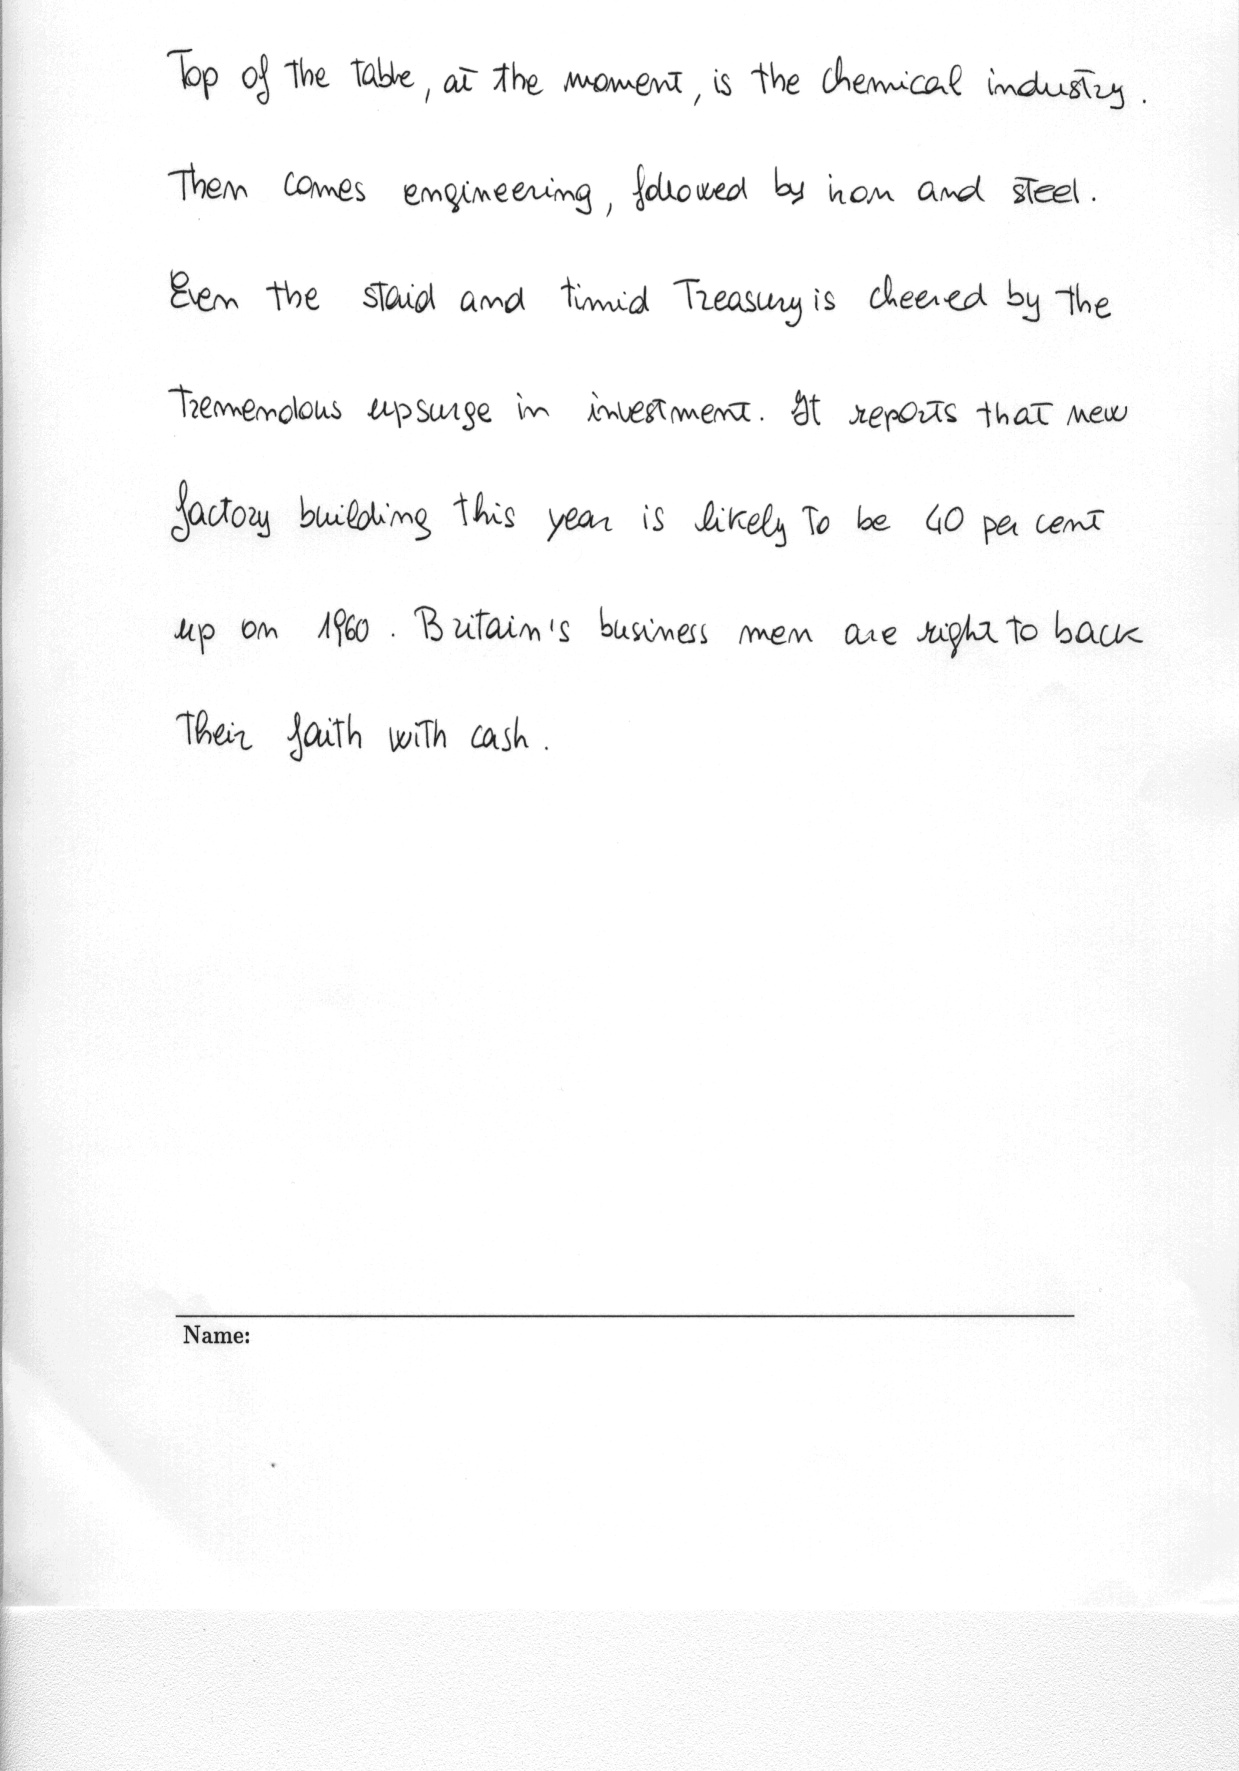 Top of the table, at the moment, is the chemical industry.
Then comes engineering, followed by iron and steel.
Even the staid and timid Treasury is cheered by the
tremendous upsurge in investment. It reports that new
factory building this year is likely to be 40 per cent
up on 1960. Britain's business men are right to back
their faith with cash.
Name: